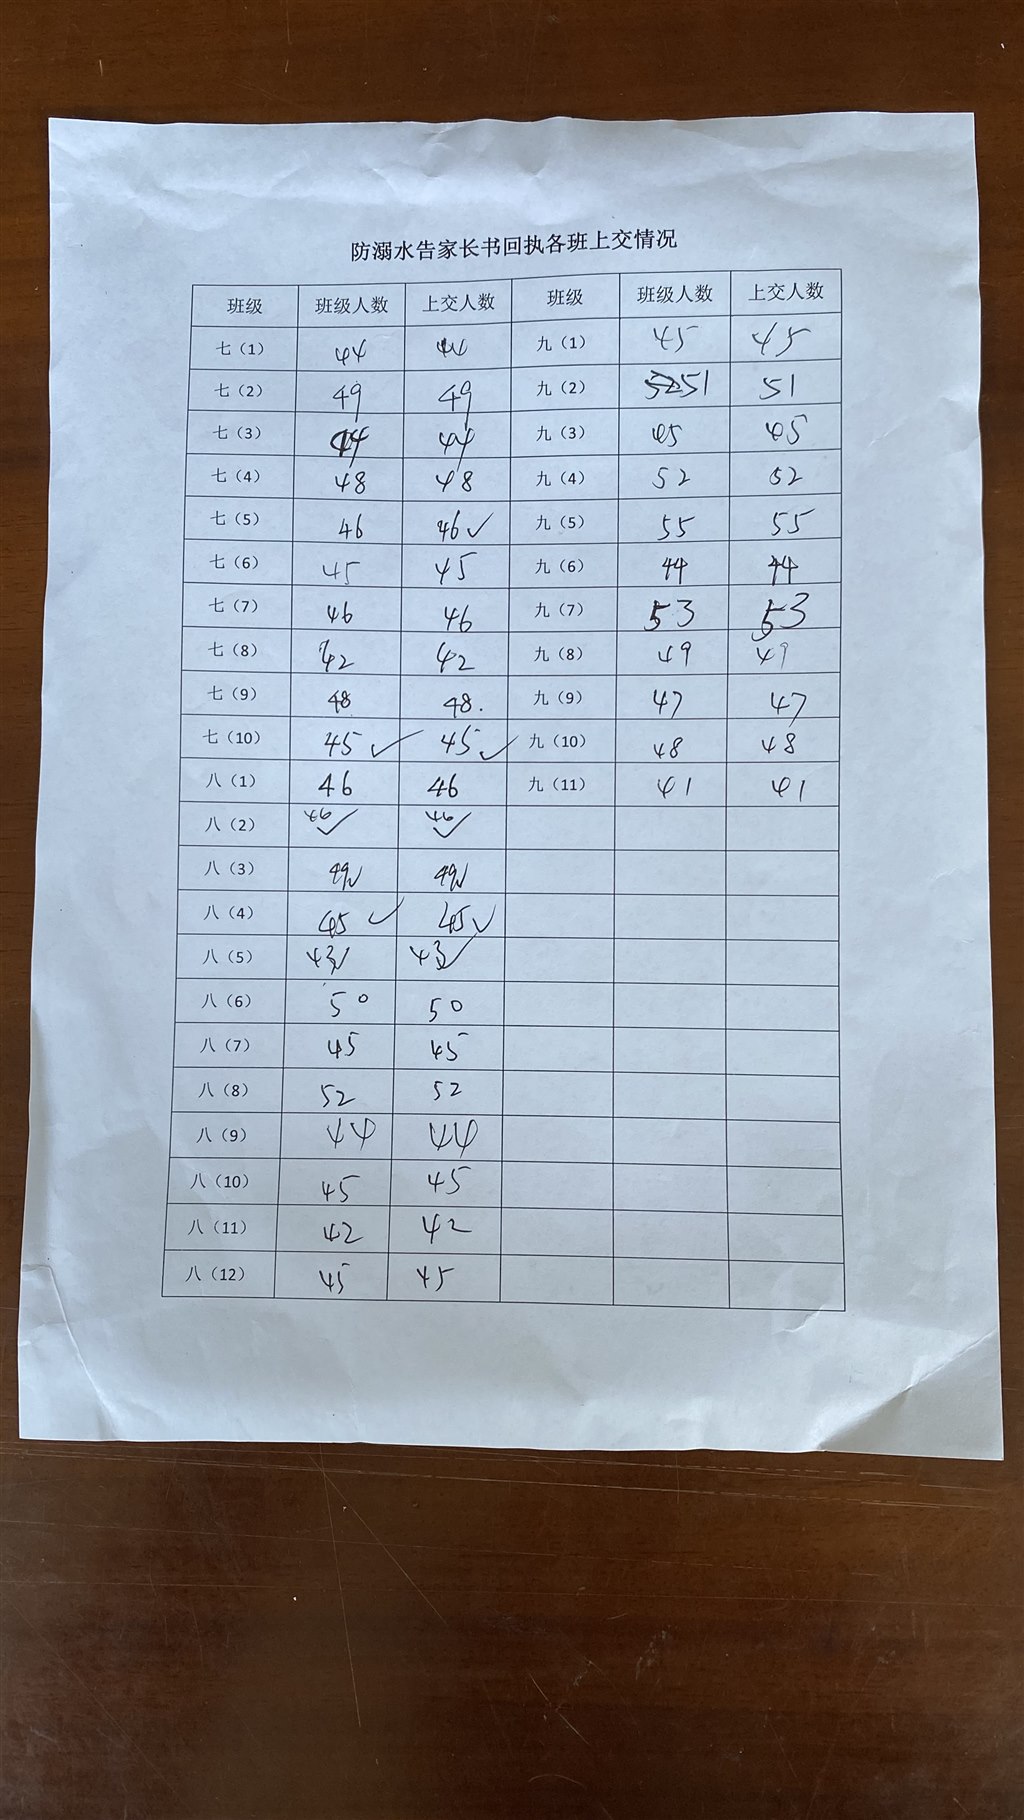 防溺水告家长书回执各班上交情况
班级 班级人数 上交人数 班级 班级人数 上交人数
七（1） 44 44 九（1） 45 45
七（2） 49 49 九（2） 51 51
七（3） 44 44 九（3） 45 45
七（4） 48 48 九（4） 52 52
七（5） 46 46✓ 九（5） 55 55
七（6） 45 45 九（6） 44 44
七（7） 46 46 九（7） 53 53
七（8） 42 42 九（8） 49 49
七（9） 48 48. 九（9） 47 47
七（10） 45✓ 45✓ 九（10） 48 48
八（1） 46 46 九（11） 41 41
八（2） 46✓ 46✓
八（3） 49✓ 49✓
八（4） 45✓ 45✓
八（5） 43✓ 43✓
八（6） 50 50
八（7） 45 45
八（8） 52 52
八（9） 44 44
八（10） 45 45
八（11） 42 42
八（12） 45 45